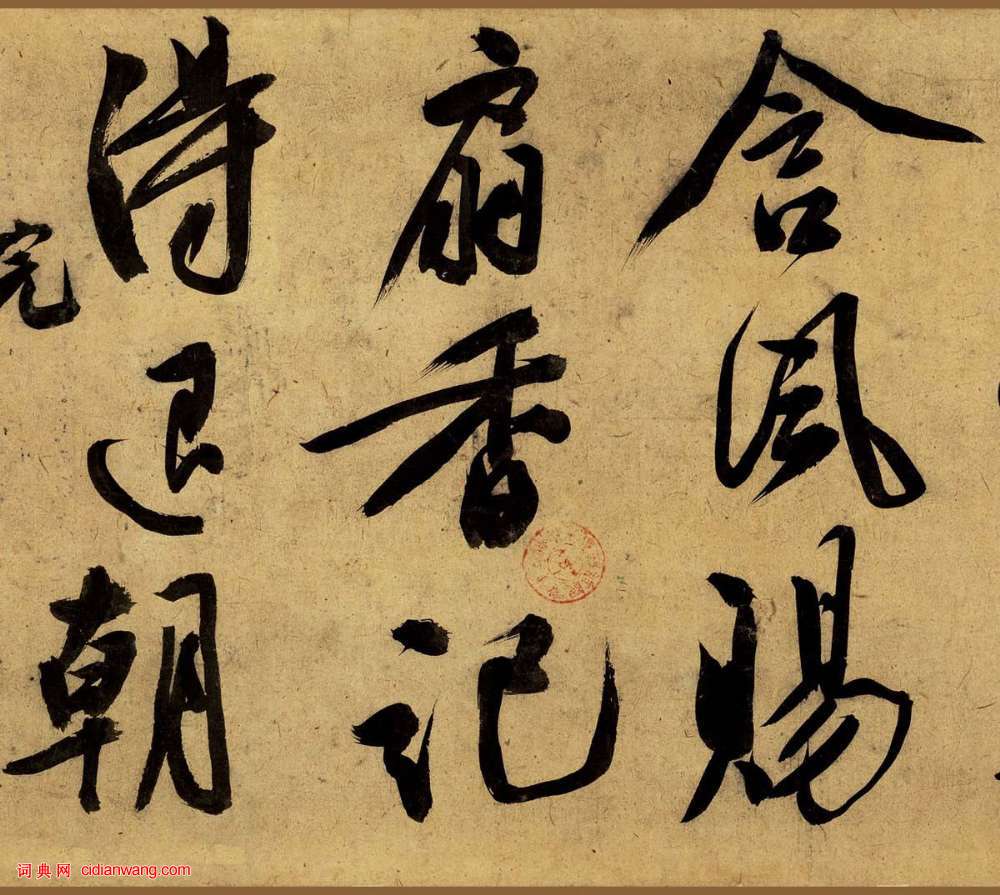 含風賜
扇香記
得退朝
完
词典网 cidianwang.com